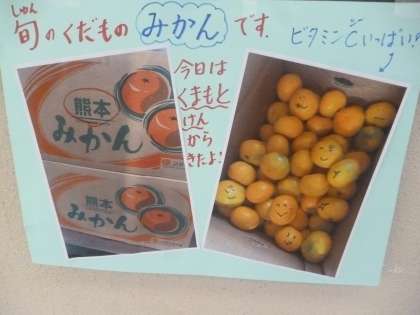 しゅん
旬のくだもの みかん です.
シー
ビタミンCいっぱい
今日は
くまもと
けん
から
きたよ!
熊本
みかん
熊本
みかん